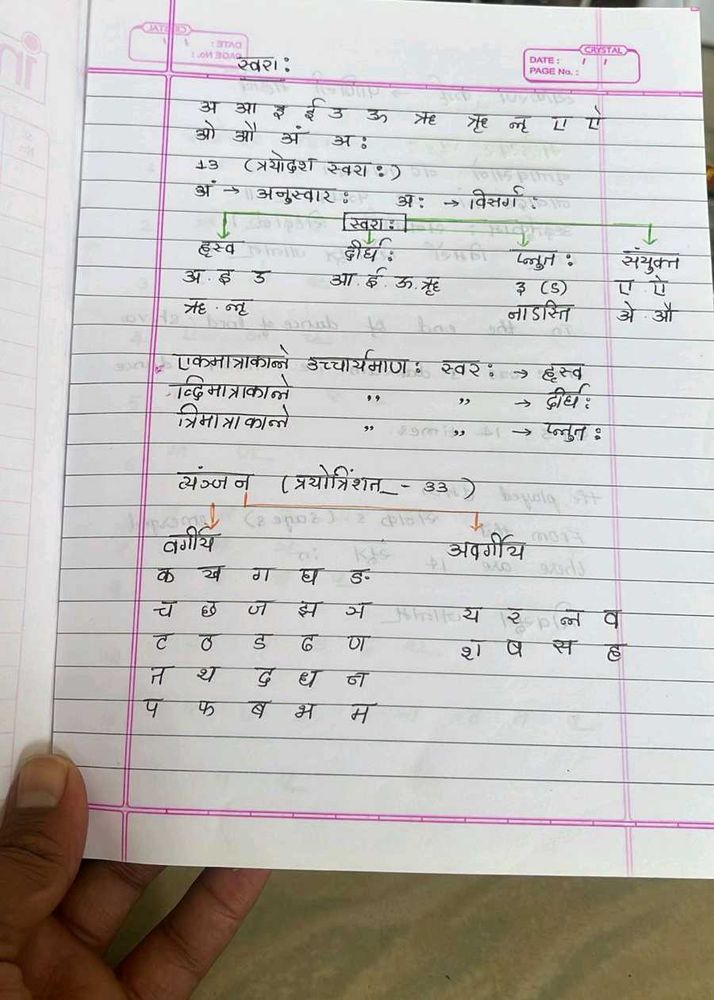 CRYSTAL
DATE : / /
PAGE No. :
स्वरा :
अ आ इ ई उ ऊ ऋ ॠ ऌ ए ऐ
ओ औ अं अ :
13 (त्रयोदश स्वरा :)
अं → अनुस्वार : अ : → विसर्ग :
स्वरा :
हृस्व दीर्ध : प्लुत : संयुक्त
अ . इ उ आ . ई . ऊ . ॠ ३ (ऽ) ए ऐ
ऋ . ऌ नाऽस्ति ओ . औ
एकमात्राकाले उच्चार्यमाण : स्वर : → हृस्व
द्विमात्राकाले ,, ,, → दीर्ध :
त्रिमात्राकाले ,, ,, → प्लुत :
व्यंञ्जन (त्रयोत्रिंशत् - 33)
वर्गीय अवर्गीय
क ख ग घ ङ
च छ ज झ ञ य र ल व
ट ठ ड ढ ण श ष स ह
त थ द ध न
प फ ब भ म